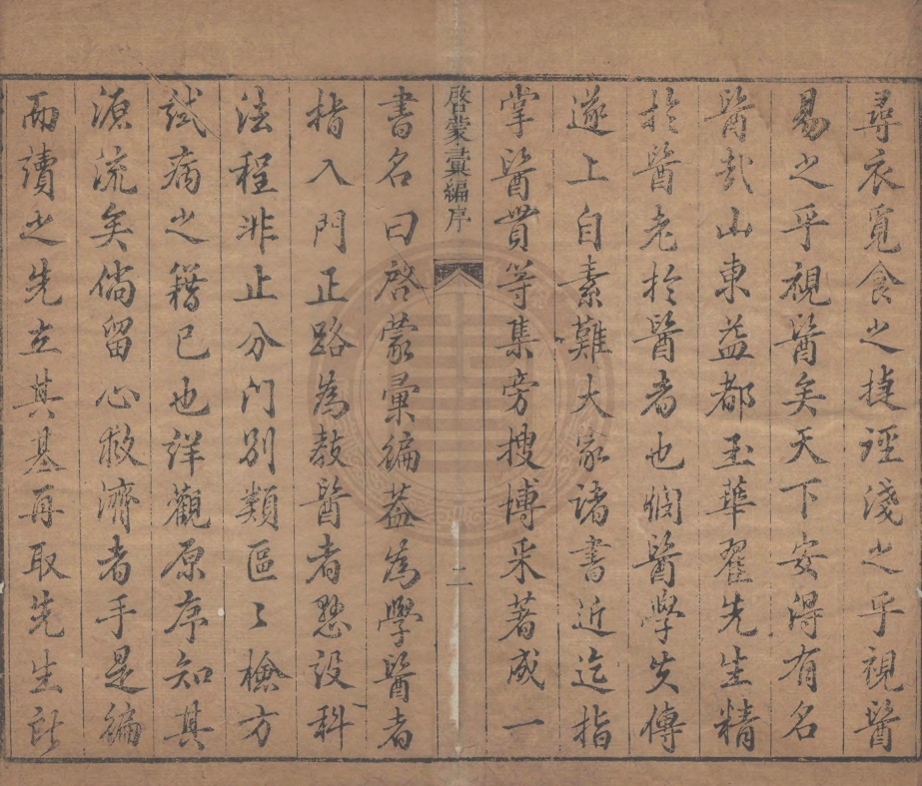 尋衣覓食之捷徑淺之乎視醫
易之乎視醫矣天下安得有名
醫哉山東益都玉華翟先生精
於醫老於醫者也憫醫學失傳
遂上自素難大家諸書近迄指
掌醫貫等集旁搜博采著成一
啓蒙彙編序
二
書名曰啓蒙彙編蓋為學醫者
指入門正路為教醫者懸設科
法程非止分門別類區〻檢方
試病之籍已也詳觀原序知其
源流矣倘留心救濟者手是編
而讀之先立其基再取先生所